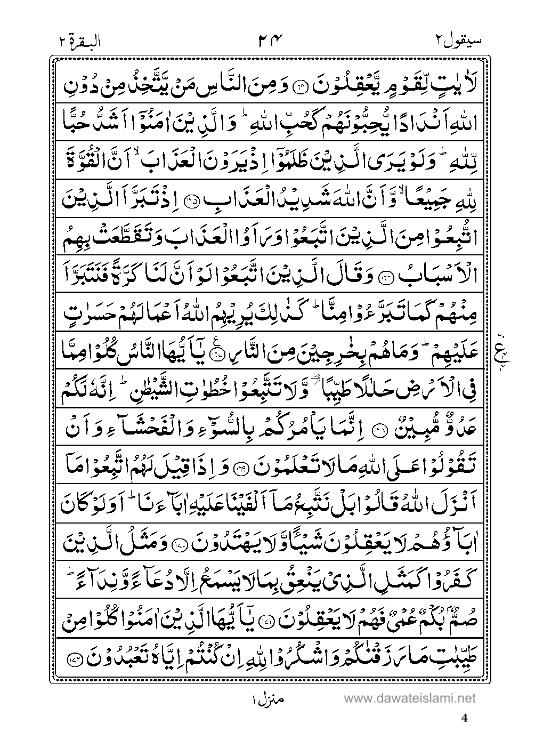 سیقول ۲ ۲۴ البقرة ۲
لَاٰیٰتٍ لِّقَوْمٍ یَّعْقِلُوْنَ ﴿۱۶۴﴾ وَ مِنَ النَّاسِ مَنْ یَّتَّخِذُ مِنْ دُوْنِ
اللهِ اَنْدَادًا یُّحِبُّوْنَهُمْ كَحُبِّ اللهِ ؕ وَ الَّذِیْنَ اٰمَنُوْۤا اَشَدُّ حُبًّا
لِّلّٰهِ ؕ وَ لَوْ یَرَى الَّذِیْنَ ظَلَمُوْۤا اِذْ یَرَوْنَ الْعَذَابَ ۙ اَنَّ الْقُوَّةَ
لِلّٰهِ جَمِیْعًا ۙ وَّ اَنَّ اللهَ شَدِیْدُ الْعَذَابِ ﴿۱۶۵﴾ اِذْ تَبَرَّاَ الَّذِیْنَ
اتُّبِعُوْا مِنَ الَّذِیْنَ اتَّبَعُوْا وَ رَاَوُا الْعَذَابَ وَ تَقَطَّعَتْ بِهِمُ
الْاَسْبَابُ ﴿۱۶۶﴾ وَ قَالَ الَّذِیْنَ اتَّبَعُوْا لَوْ اَنَّ لَنَا كَرَّةً فَنَتَبَرَّاَ
مِنْهُمْ كَمَا تَبَرَّءُوْا مِنَّا ؕ كَذٰلِكَ یُرِیْهِمُ اللهُ اَعْمَالَهُمْ حَسَرٰتٍ
عَلَیْهِمْ ؕ وَ مَا هُمْ بِخٰرِجِیْنَ مِنَ النَّارِ ﴿۱۶۷﴾ یٰۤاَیُّهَا النَّاسُ كُلُوْا مِمَّا
فِی الْاَرْضِ حَلٰلًا طَیِّبًا ۖ وَّ لَا تَتَّبِعُوْا خُطُوٰتِ الشَّیْطٰنِ ؕ اِنَّهٗ لَكُمْ
عَدُوٌّ مُّبِیْنٌ ﴿۱۶۸﴾ اِنَّمَا یَاْمُرُكُمْ بِالسُّوْٓءِ وَ الْفَحْشَآءِ وَ اَنْ
تَقُوْلُوْا عَلَى اللهِ مَا لَا تَعْلَمُوْنَ ﴿۱۶۹﴾ وَ اِذَا قِیْلَ لَهُمُ اتَّبِعُوْا مَاۤ
اَنْزَلَ اللهُ قَالُوْا بَلْ نَتَّبِعُ مَاۤ اَلْفَیْنَا عَلَیْهِ اٰبَآءَنَا ؕ اَوَ لَوْ كَانَ
اٰبَآؤُهُمْ لَا یَعْقِلُوْنَ شَیْـًٔا وَّ لَا یَهْتَدُوْنَ ﴿۱۷۰﴾ وَ مَثَلُ الَّذِیْنَ
كَفَرُوْا كَمَثَلِ الَّذِیْ یَنْعِقُ بِمَا لَا یَسْمَعُ اِلَّا دُعَآءً وَّ نِدَآءً ؕ
صُمٌّۢ بُكْمٌ عُمْیٌ فَهُمْ لَا یَعْقِلُوْنَ ﴿۱۷۱﴾ یٰۤاَیُّهَا الَّذِیْنَ اٰمَنُوْا كُلُوْا مِنْ
طَیِّبٰتِ مَا رَزَقْنٰكُمْ وَ اشْكُرُوْا لِلّٰهِ اِنْ كُنْتُمْ اِیَّاهُ تَعْبُدُوْنَ ﴿۱۷۲﴾
منزل ۱
www.dawateislami.net
4